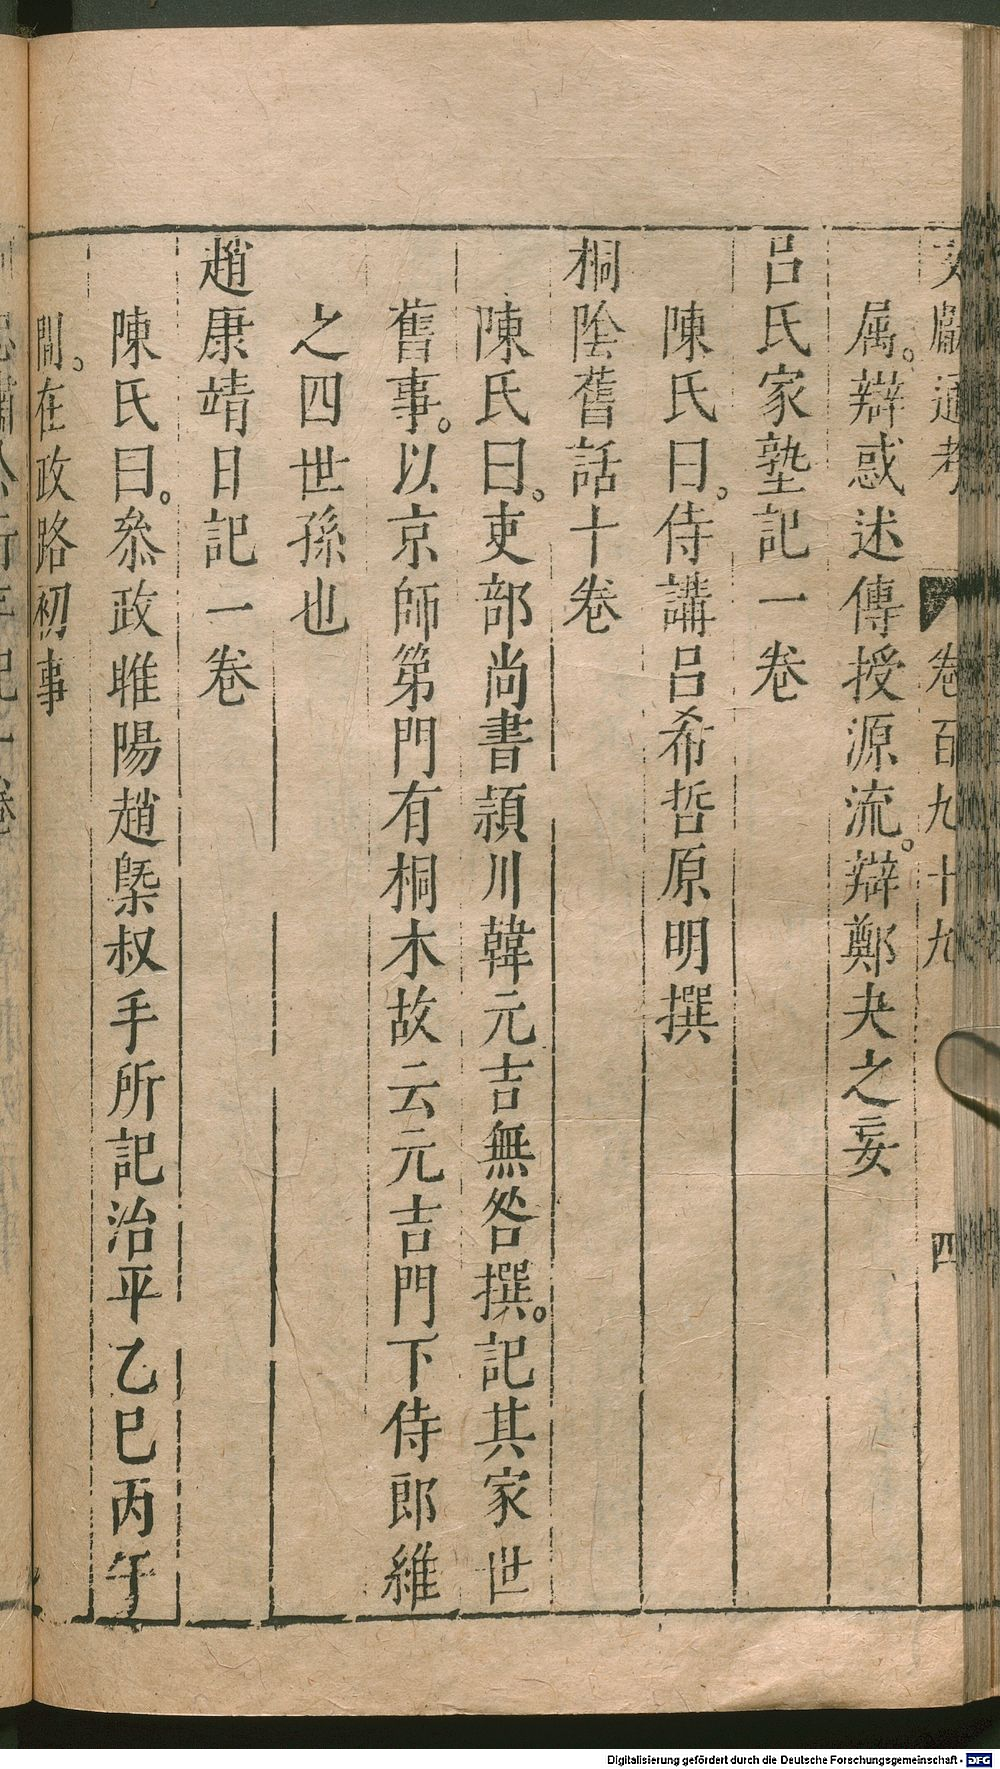 文獻通考 卷百九十九 四
属。辯惑述傳授源流。辯鄭夬之妄
呂氏家塾記一卷
陳氏曰。侍講呂希哲原明撰
桐陰舊話十卷
陳氏曰。吏部尚書潁川韓元吉無咎撰。記其家世
舊事。以京師第門有桐木故云元吉門下侍郎維
之四世孫也
趙康靖日記一卷
陳氏曰。叅政睢陽趙槩叔手所記治平乙巳丙午
間。在政路初事
Digitalisierung gefördert durch die Deutsche Forschungsgemeinschaft - DFG